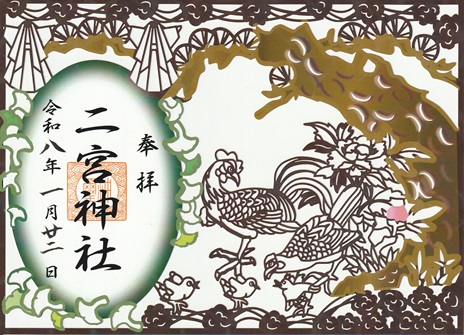 奉拝
二宮神社
令和八年一月廿二日